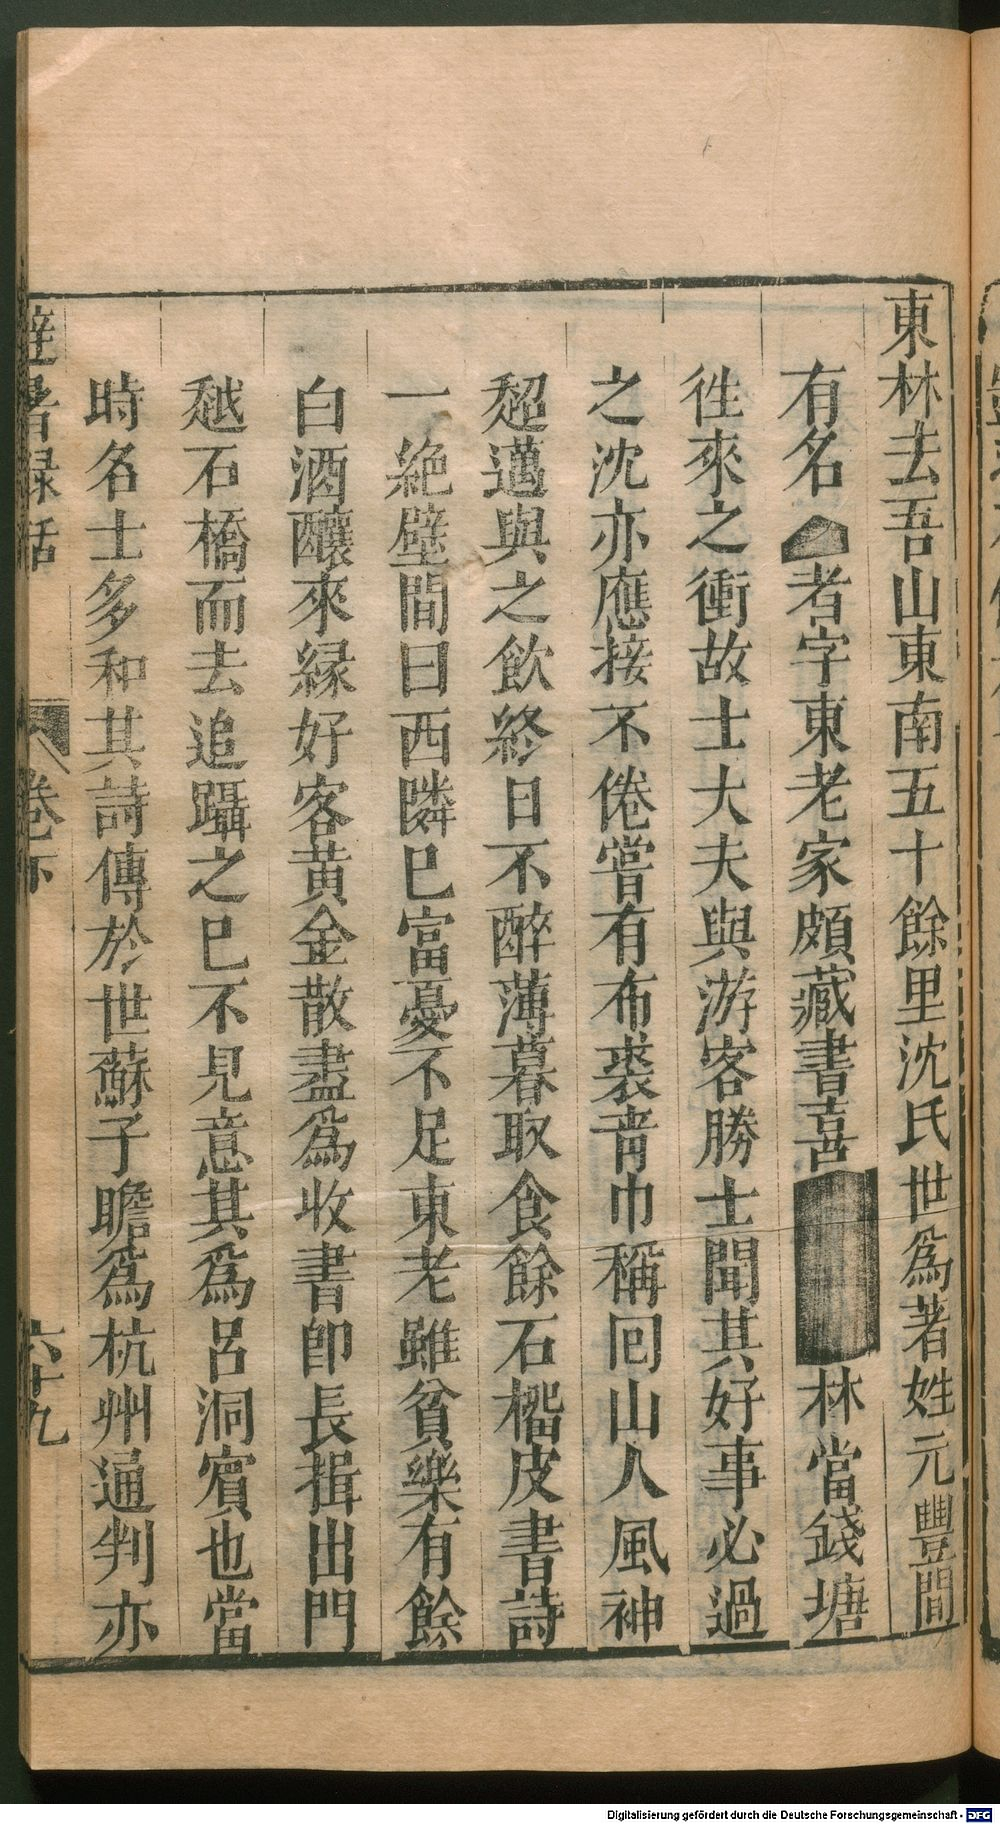 東林去吾山東南五十餘里沈氏世爲著姓元豐間
有名者字東老家頗藏書喜林當錢塘
徃來之衝故士大夫與游客勝士聞其好事必過
之沈亦應接不倦嘗有布裘青巾稱回山人風神
超邁與之飲終日不醉薄暮取食餘石榴皮書詩
一絶壁間曰西隣巳富憂不足東老雖貧樂有餘
白酒釀來緑好客黄金散盡爲收書即長揖出門
越石橋而去追躡之巳不見意其爲呂洞賓也當
時名士多和其詩傳於世蘇子瞻爲杭州通判亦
避暑録話 卷下 六十九
Digitalisierung gefördert durch die Deutsche Forschungsgemeinschaft - DFG